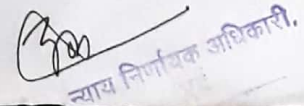 न्याय निर्णायक अधिकारी,